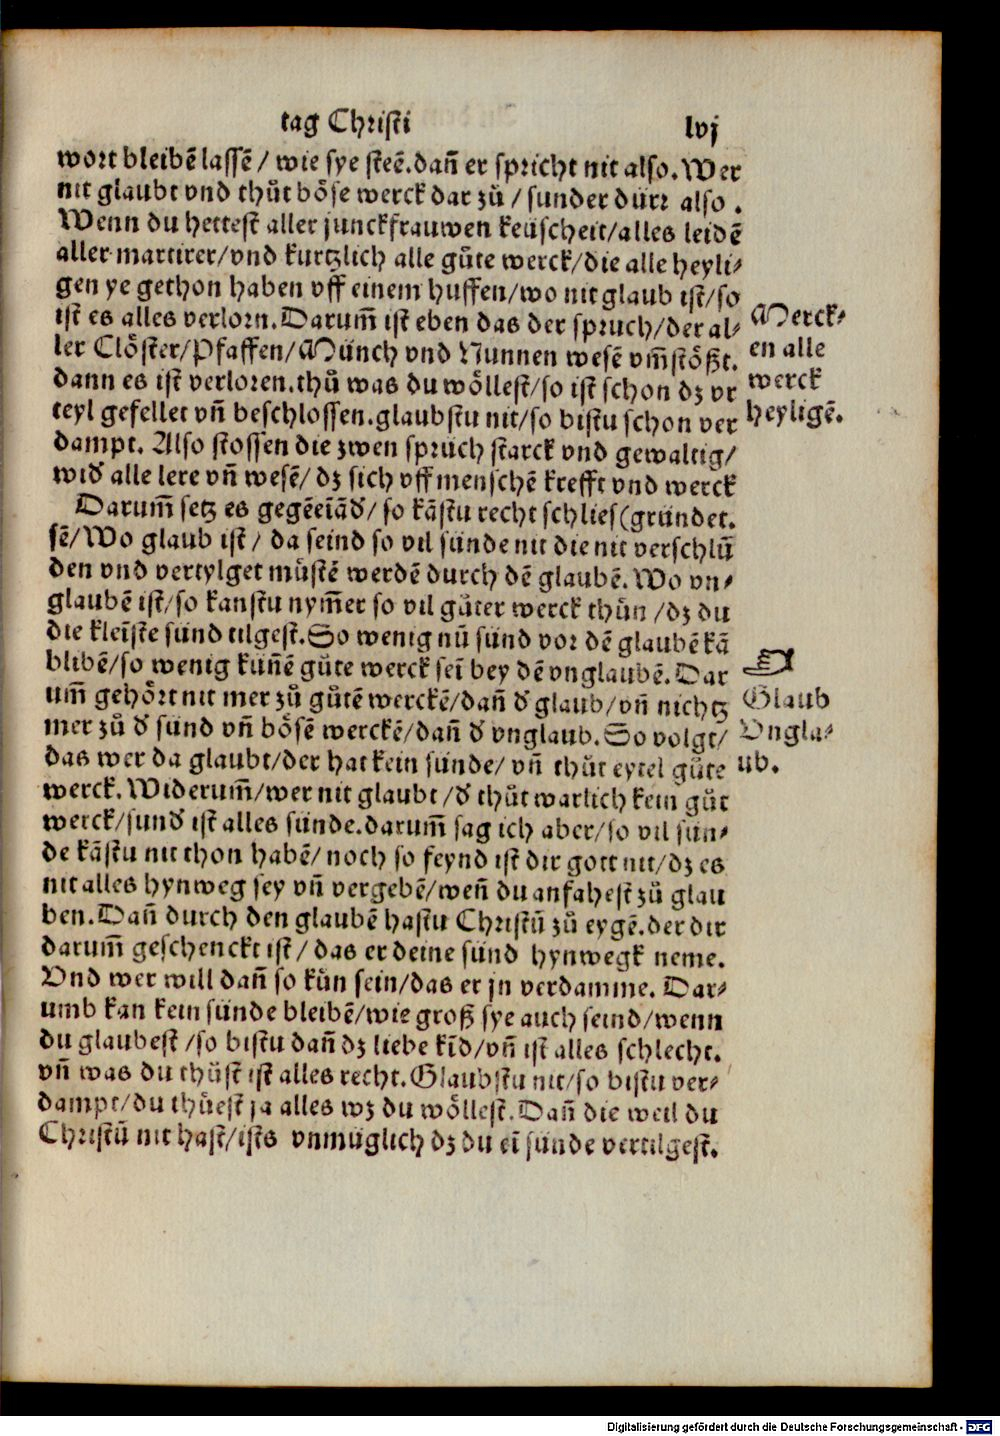 tag Christi lvj
wort bleibē lassē / wie sye steē. dañ er spricht nit also. Wer
nit glaubt vnd thůt böse werck dar zů / sunder dürr also .
Wenn du hettest aller junckfrauwen keüscheit/alles leidē
aller martirer/vnd kurtzlich alle gůte werck/die alle heyli⸗
gen ye gethon haben vff einem huffen/wo nit glaub ist/so
ist es alles verlorn. Darum̃ ist eben das der spruch/der al⸗
ler Clöster/Pfaffen/Münch vnd Nunnen wesē vm̃stößt.
dann es ist verloren. thů was du wöllest/so ist schon dz vr
teyl gefellet vñ beschlossen. glaubstu nit/so bistu schon ver
dampt. Also stossen die zwen sprüch starck vnd gewaltig/
wid᷑ alle lere vñ wesē/ dz sich vff menschē krefft vnd werck
Darum̃ setz es gegēeīād᷑/ so kāstu recht schlies(gründet.
sē/Wo glaub ist / da seind so vil sünde nit die nit verschlū
den vnd vertylget müstē werdē durch dē glaubē. Wo vn⸗
glaubē ist/so kanstu nym̃er so vil gůter werck thůn /dz du
die kleīste sünd tilgest. So wenig nū sünd vor dē glaubē kā
blibē/so wenig künē gůte werck seī bey dē vnglaubē. Dar
um̃ gehört nit mer zů gůtē werckē/dañ d᷑ glaub/vñ nichtz
mer zů d᷑ sünd vñ bösē werckē/dañ d᷑ vnglaub. So volgt/
das wer da glaubt/der hat kein sünde/ vñ thůt eytel gůte
werck. Widerum̃/wer nit glaubt /d᷑ thůt warlich kein gůt
werck/sund᷑ ist alles sünde. darum̃ sag ich aber/so vil sün⸗
de kāstu nit thon habē/ noch so feynd ist dir gott nit/dz es
nit alles hynweg sey vñ vergebē/weñ du anfahest zů glau
ben. Dañ durch den glaubē hastu Christū zů eygē. der dir
darum̃ geschenckt ist / das er deine sünd hynwegk neme.
Vnd wer will dañ so kůn sein/das er jn verdamme. Dar⸗
umb kan kein sünde bleibē/wie groß sye auch seind/wenn
du glaubest /so bistu dañ dz liebe kīd/vñ ist alles schlecht.
vñ was du thůst ist alles recht. Glaubstu nit/so bistu ver⸗
dampt/du thůest ja alles wz du wöllest. Dañ die weil du
Christū nit hast/ists vnmüglich dz du eī sünde vertilgest.
Merck⸗
en alle
werck
heyligē.
Glaub
Vngla⸗
ub.
Digitalisierung gefördert durch die Deutsche Forschungsgemeinschaft - DFG